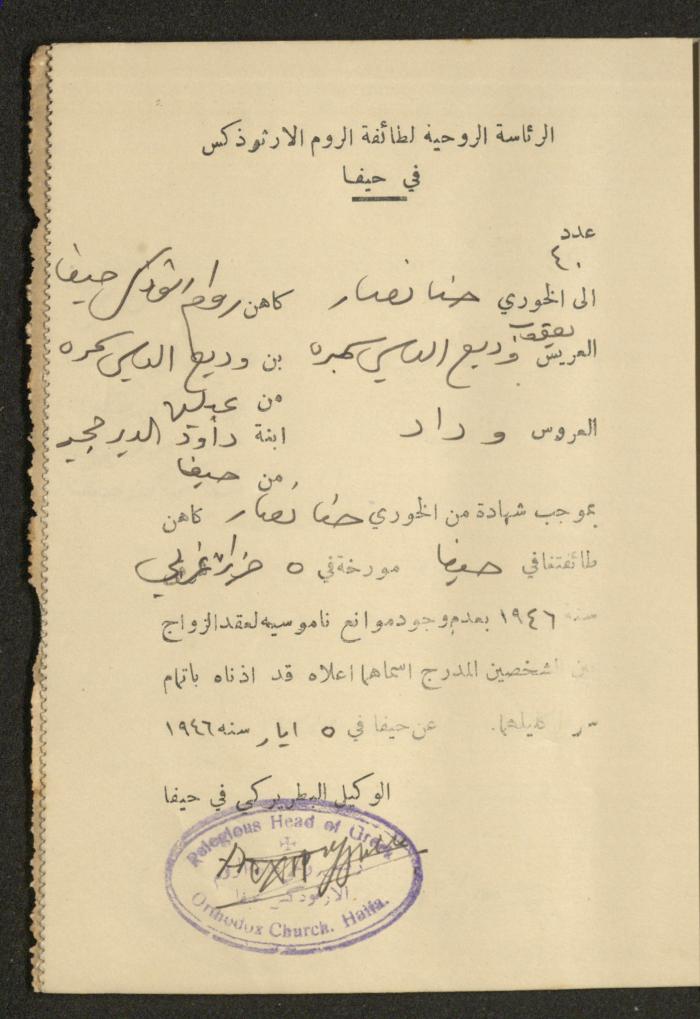 الرئاسة الروحية لطائفة الروم الارثوذكس
في حيفا
عدد
٤٠
الى الخوري حنا نصار كاهن روم ارثوذكس حيفا
العريس وديع الياس بن وديع الياس
من
العروس وداد ابنة داود
من حيفا
بموجب شهادة من الخوري حنا نصار كاهن
طائفتنا في حيفا مورخة في ٥
سنة ١٩٤٦ بعدم وجود موانع ناموسيه لعقد الزواج
بين الشخصين المدرج اسماهما اعلاه قد اذناه باتمام
عن حيفا في ٥ ايار سنه ١٩٤٦
الوكيل البطريركي في حيفا
Relegious Head of Greek
الارثوذكس حيفا
Orthodox Church. Haifa.